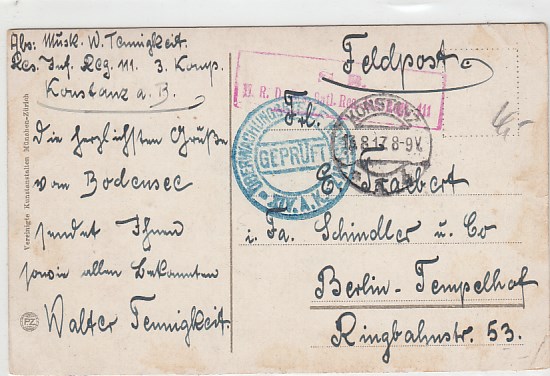 Abs: Musk. W. Tennigkeit.
Res. Inf. Reg. 111. 3. Komp.
Konstanz a. B.
Die herzlichsten Grüße
vom Bodensee
sendet Ihnen
sowie allen Bekannten
Walter Tennigkeit.
Vereinigte Kunstanstalten München-Zürich
PZ
Feldpost.
111
ÜBERWACHUNGS
GEPRÜFT
XIV. A.K.
KONSTANZ
8.17 8-9V.
Frl.
E.
i. Fa. Schindler u. Co
Berlin-Tempelhof
Ringbahnstr. 53.